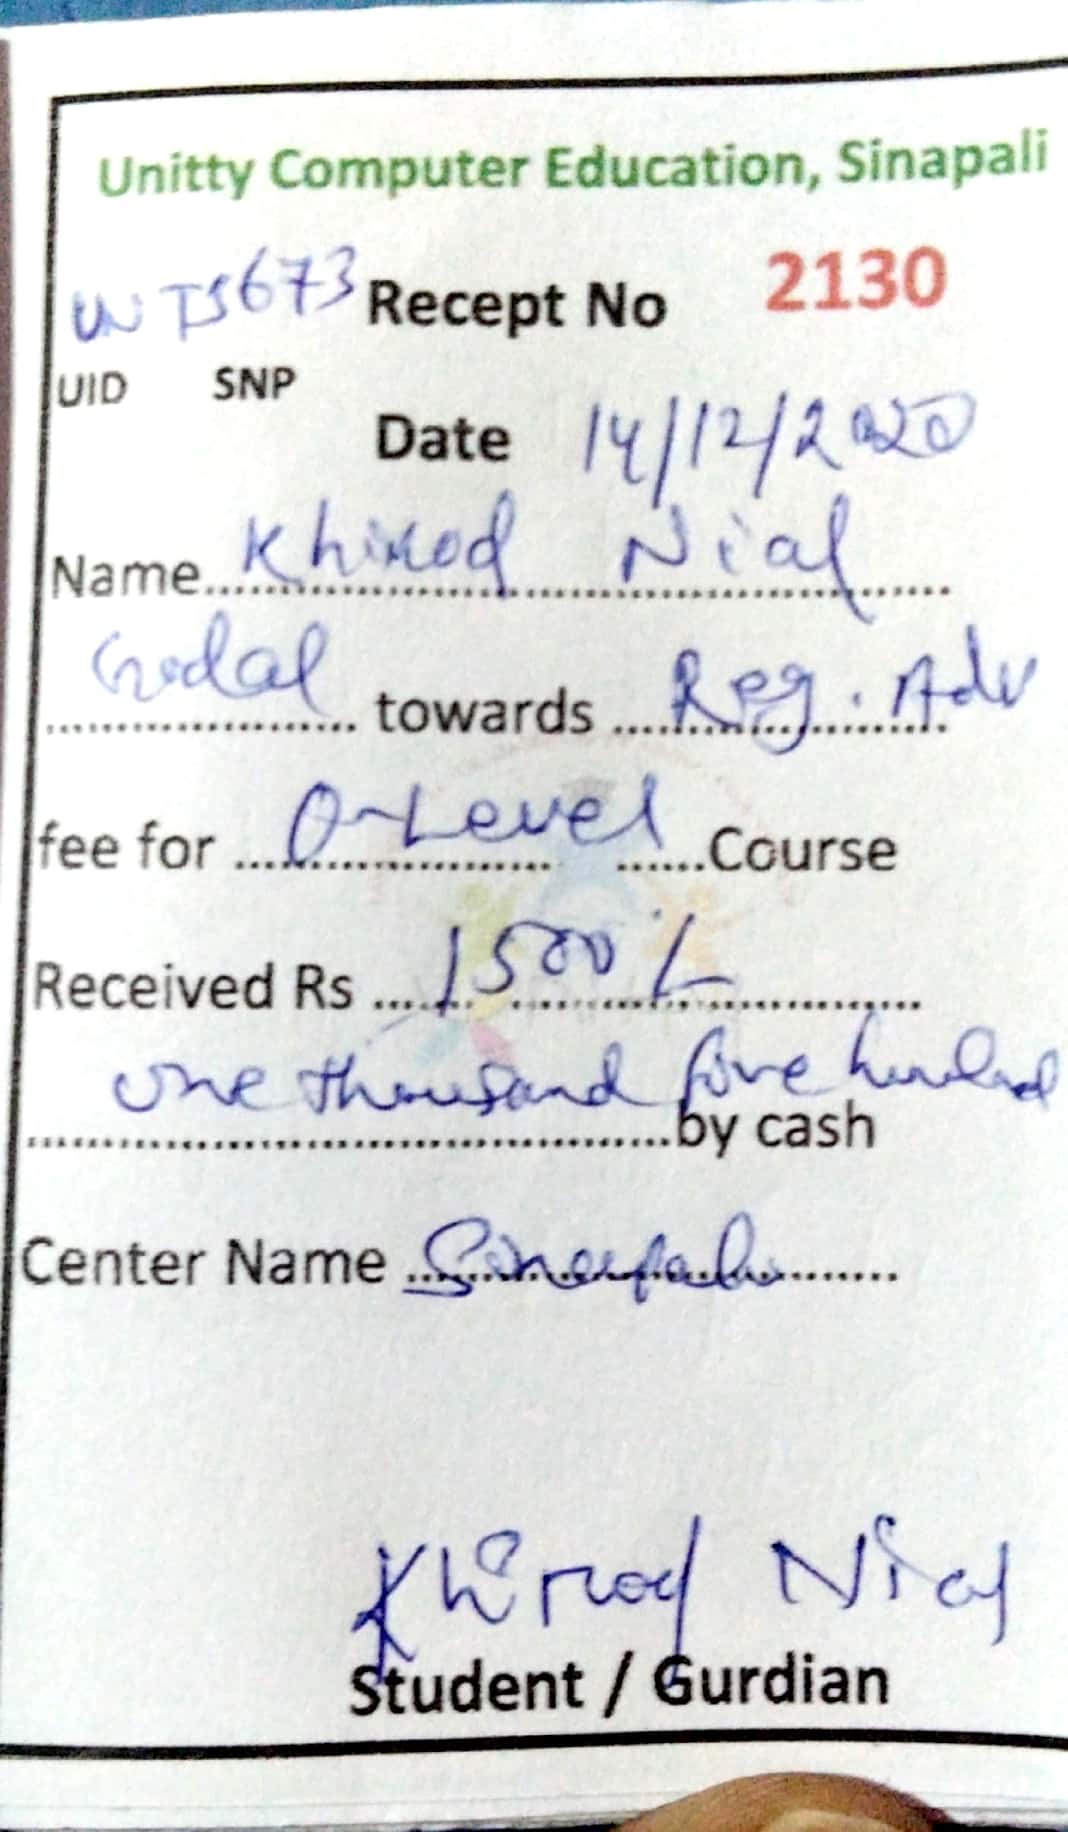 Unitty Computer Education, Sinapali
UNTS673 Recept No 2130
UID SNP
Date 14/12/2020
Name Khirod Nial
towards Reg. Adv
fee for O-Level Course
Received Rs 1500/-
one thousand five hundred
by cash
Center Name Sinapali
Khirod Nial
Student / Gurdian